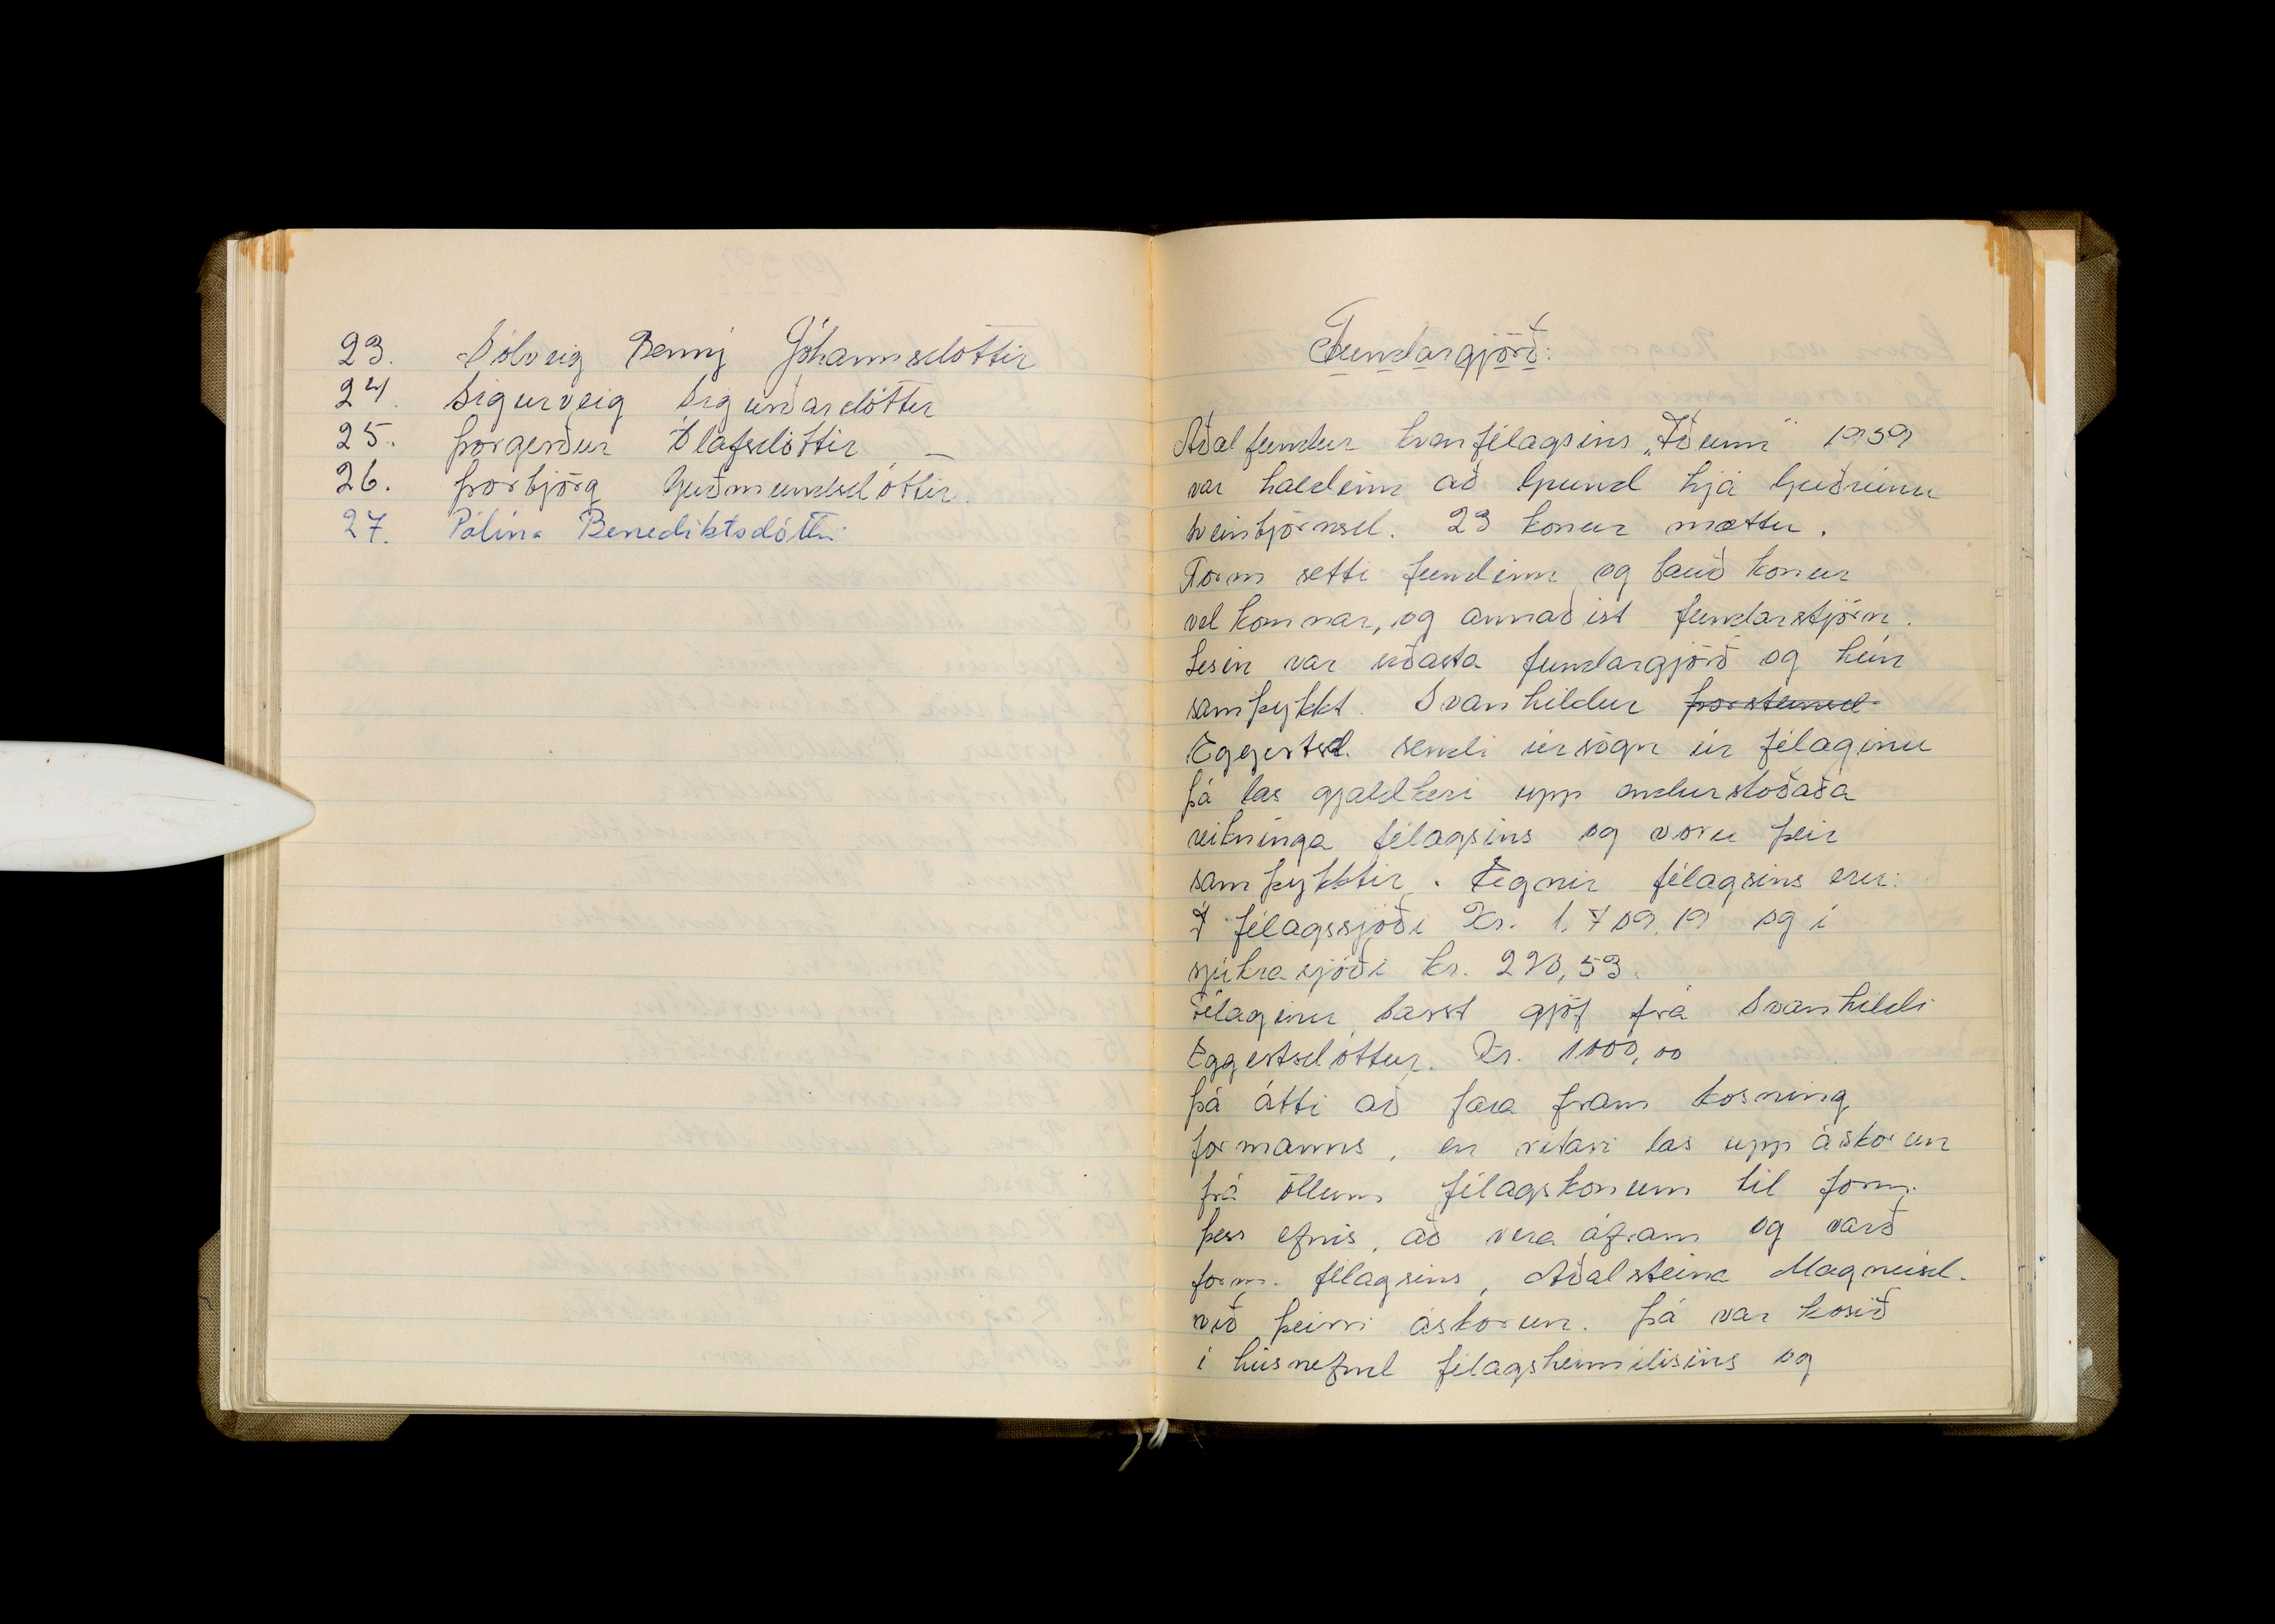 23. Sólveig Benný Jóhannsdóttir
24. Sigurveig Sigurðardóttir
25. Þorgerður Ólafsdóttir —
26. Þorbjörg Guðmundsdóttir.
27. Pálína Benediktsdóttir
Fundargjörð:
Aðalfundur kvenfélagsins „Iðunn" 1959
var haldinn að Grund hjá Guðrúnu
Sveinbjörnsd. 23 konur mættu.
Form setti fundinn og bauð konur
velkomnar, og annaðist fundarstjórn.
Lesin var síðasta fundargjörð og hún
samþykkt. Svanhildur Þorsteinsd
Eggertsd. sendi úrsögn úr félaginu
Þá las gjaldkeri upp endurskoðaða
reikninga félagsins og voru þeir
samþykktir. Eignir félagsins eru:
Í félagssjóði Kr. 1.709.19 og í
sjúkrasjóði kr. 220,53.
Félaginu barst gjöf frá Svanhildi
Eggertsdóttur. Kr. 1000,00
Þá átti að fara fram kosning
formanns, en ritari las upp áskorun
frá öllum félagskonum til form.
þess efnis, að vera áfram og varð
form. félagsins, Aðalsteina Magnúsd.
við þeirri áskorun. Þá var kosið
í húsnefnd félagsheimilisins og